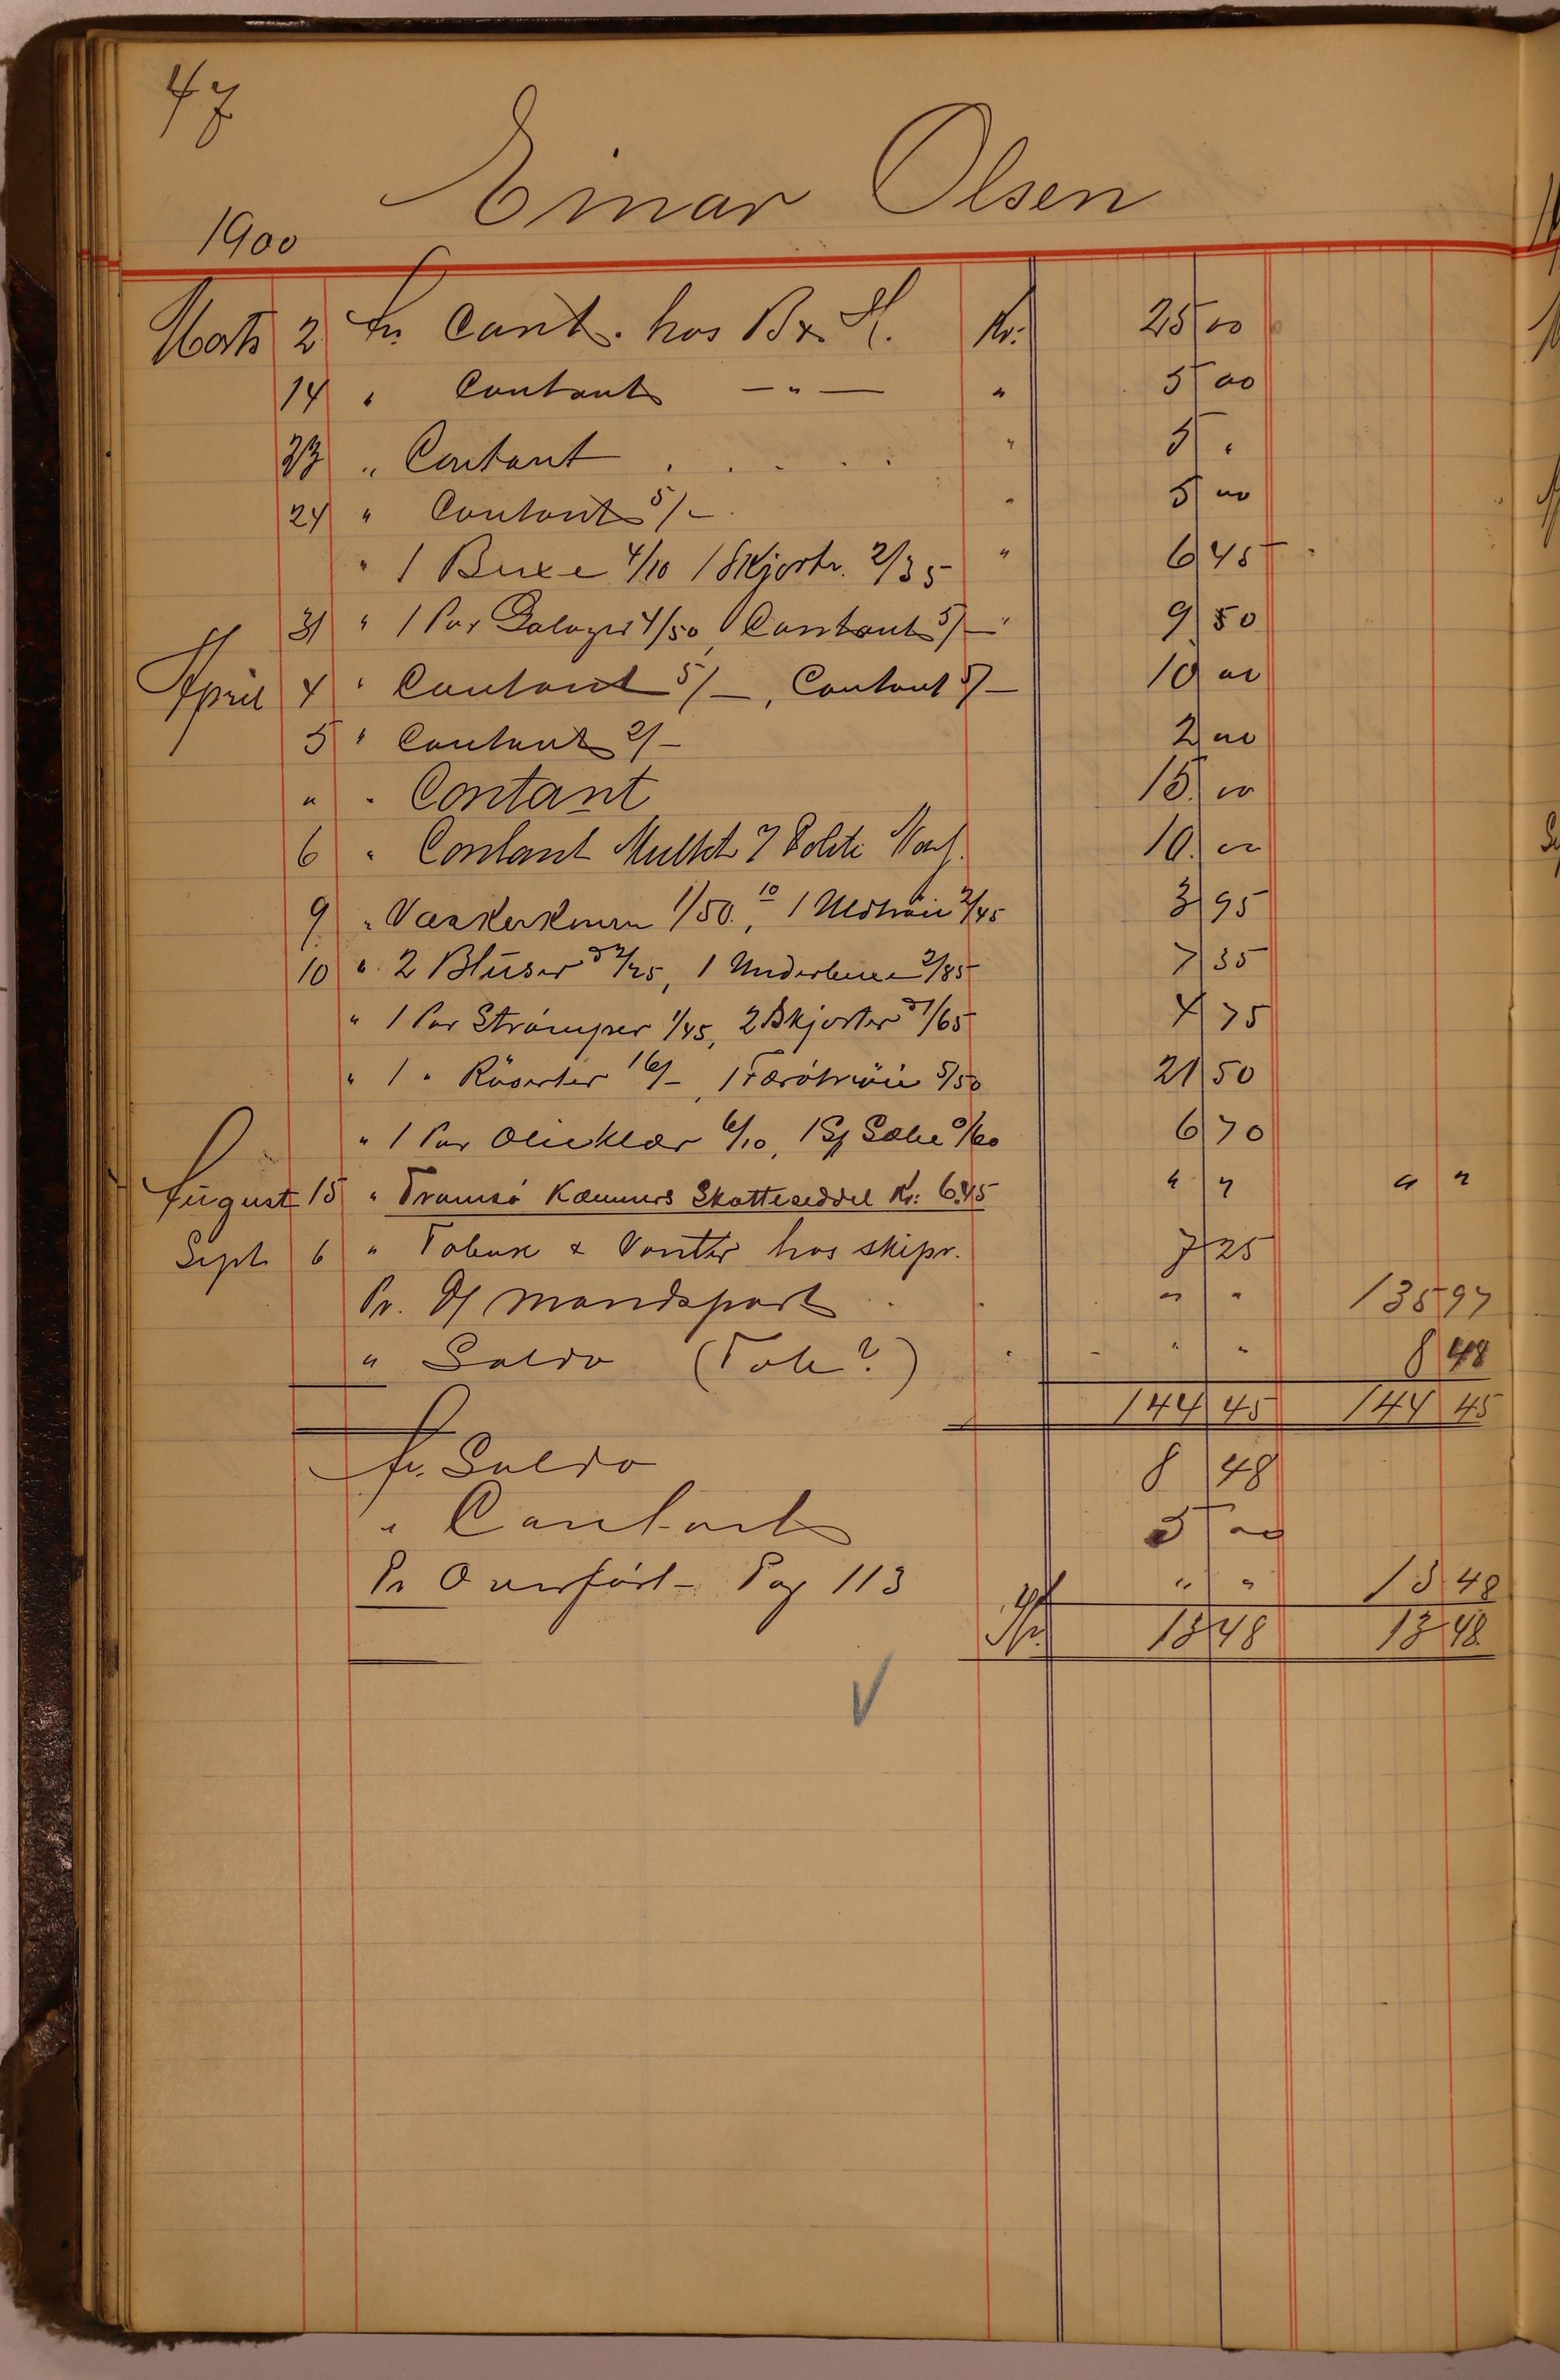 47
Einar Olsen
1900
Marts 2 An Cont. hos Br. K. Kr. 25 00
14 " Contant — " — " 5 00
23 " Contant . . . . . " 5 "
24 " Contant 5/- " 5 00
" 1 Buxe 4/10 1 Skjorte 2/35 " 6 45
31 " 1 Par Galoger 4/50, Contant 5/- " 9 50
April 4 " Contant 5/-, Contant 5/- 10 00
5 " Contant 2/- 2 00
" " Contant 15 00
6 " Contant Mulkt 10 00
9 " 1/50., 10 1 Uldtröie 2/45 3 95
10 " 2 Blüser à 2/25, 1 Underbuxe 2/85 7 35
" 1 Par Strömper 1/45, 2 Skjorter à 1/65 4 75
" 1 " Röserter 16/-, 1 Færötröie 5/50 21 50
" 1 Par Olieklær 6/10, 1 Sæbe 0/60 6 70
August 15 " Tromsö Kæmners Skatteseddel Kr: 6.45 " " " "
Sept. 6 " Tobak & Vanter hos skipr. 7 25
Pr. D/ Mandspart " " 135 97
" Saldo (Tob?) " " 8 48
144 45 144 45
An Saldo 8 48
" Contant 5 00
Pr Overfört - Pag 113 " " 13 48
Kr. 13 48 13 48